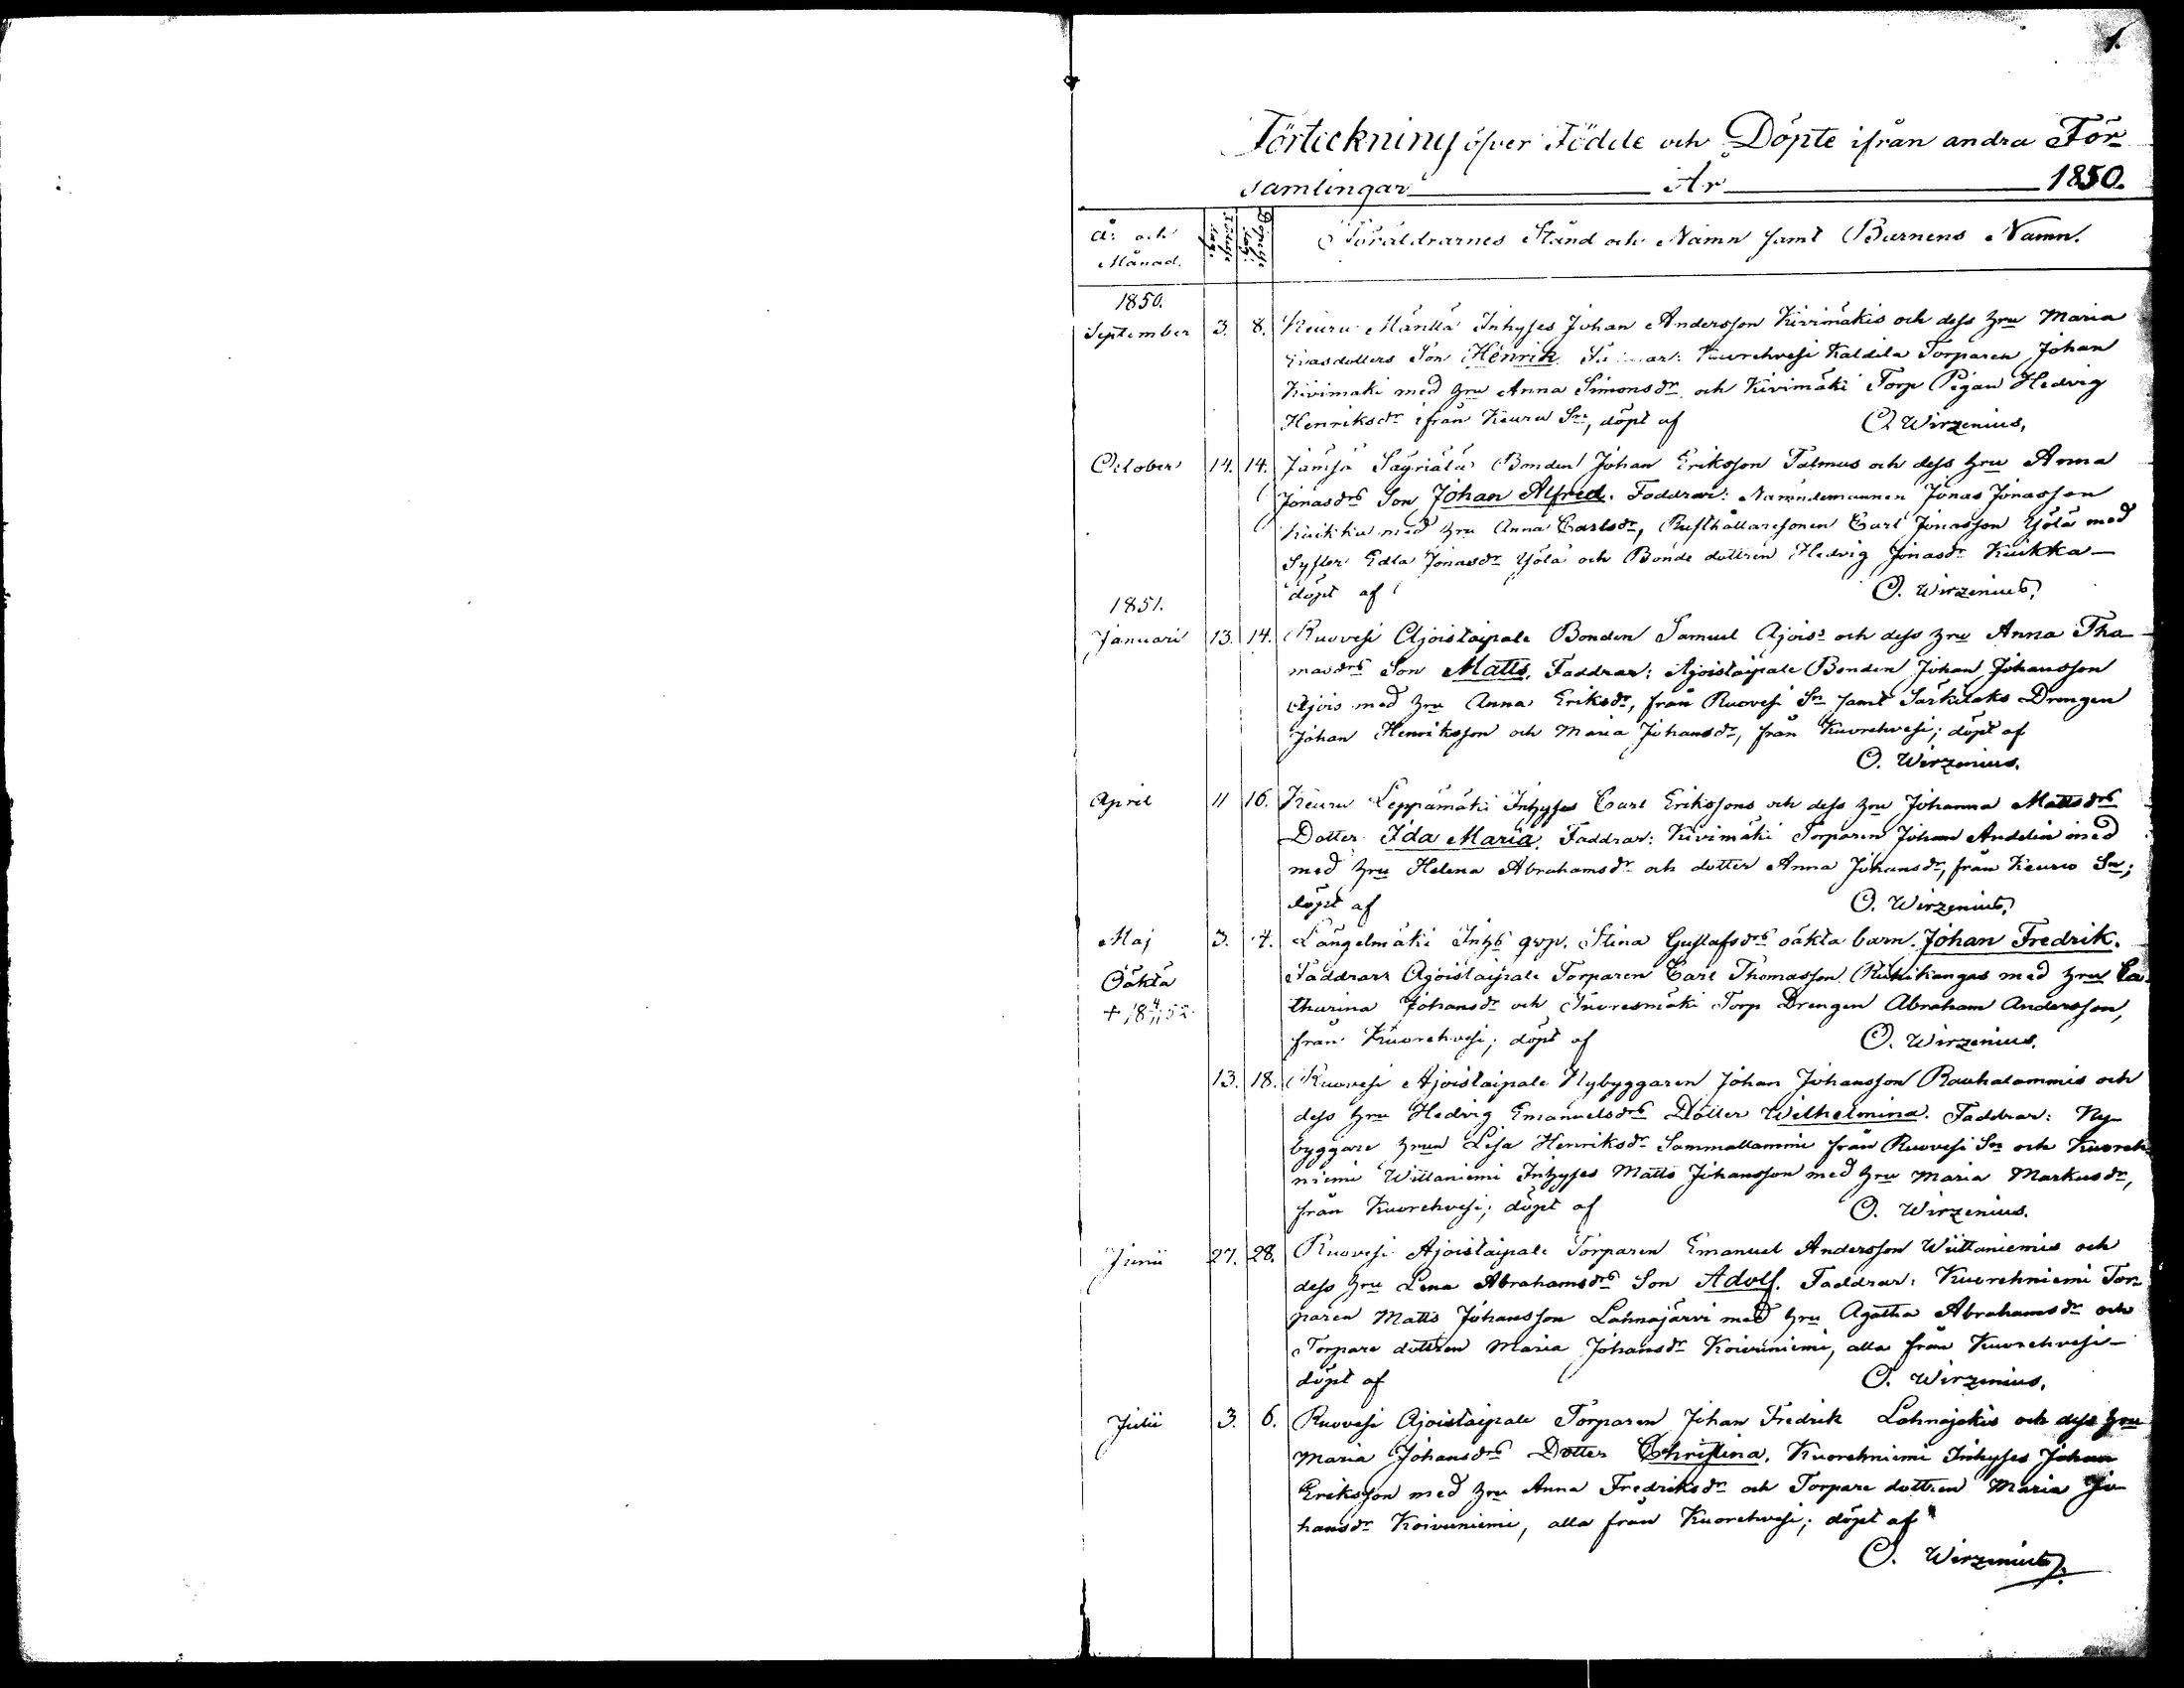 1.
Förteckning öfver Födde och Döpte ifrån andra För-
samlingar År 1850.
År och Månad. Födelse dag. Döpelse dag. Föräldrarnes Stånd och Namn samt Barnens Namn.
1850.
September 3. 8. Keuru Mänttä Inhyses Johan Andersson Kivimäkis och dess hru Maria
Esrasdotters Son Henrik Kuorehvesi Torparen Johan
Kivimäki med hru Anna Simonsdr och Kivimäki Torp Pigan Hedvig
Henriksdr ifrån Keuru Sn, döpt af O. Wirzenius.
October 14. 14. Jämsä Säyriälä Bonden Johan Eriksson Talmus och dess hru Anna
Jonasdrs Son Johan Alfred. Faddrar: Nämndemannen Jonas Jonasson
Kuikka med hru Anna Carlsdr, Rusthållaresonen Carl Jonasson Yölä med
Syster Edla Jonasdr Yölä och Bonde dottren Hedvig Jonasdr Kuikka —
döpt af O. Wirzenius.
1851.
Januari 13. 14. Ruovesi Ajoistaipale Bonden Samuel Ajois och dess hru Anna Tho-
masdrs Son Matts. Faddrar: Ajoistaipale Bonden Johan Johansson
Ajois med hru Anna Eriksdr, från Ruovesi Sn samt Särkilaks Drengen
Johan Henriksson och Maria Johansdr, från Kuorehvesi; döpt af
O. Wirzenius.
April 11 16. Keuru Leppämäki Inhyses Carl Erikssons och dess hru Johanna Mattsdrs
Dotter Ida Maria. Faddrar: Kivimäki Torparen Johan Andelin med
med hru Helena Abrahamsdr och dotter Anna Johansdr, från Keuru Sn;
döpt af O. Wirzenius.
Maj 3. 4. Längelmäki Inhs qvp. Stina Gustafsdrs oäkta barn. Johan Fredrik.
Oäkta Faddrar: Ajoistaipale Torparen Carl Thomasson Riihikangas med hru Ca-
+ 18 4/11 52. tharina Johansdr och Torp Drengen Abraham Andersson,
från Kuorehvesi; döpt af O. Wirzenius.
13. 18. Ruovesi Ajoistaipale Nybyggaren Johan Johansson Rauhalammis och
dess hru Hedvig Emanuelsdrs Dotter Wilhelmina. Faddrar: Ny-
byggare hrun Lisa Henriksdr Sammallammi från Ruovesi Sn och Kuoreh-
niemi Wiitaniemi Inhyses Matts Johansson med hru Maria Markusdr,
från Kuorehvesi; döpt af O. Wirzenius.
Junii 27. 28. Ruovesi Ajoistaipale Torparen Emanuel Andersson Wiitaniemis och
dess hru Lena Abrahamsdrs Son Adolf. Faddrar: Kuorehniemi Tor-
paren Matts Johansson Lahnajärvi med hru Agatha Abrahamsdr och
Torpare dottren Maria Johansdr Koivuniemi, alla från Kuorehvesi —
döpt af O. Wirzenius.
Julii 3. 6. Ruovesi Ajoistaipale Torparen Johan Fredrik Lahnajokis och dess hru
Maria Johansdrs Dotter Christina. Kuorehniemi Inhyses Johan
Eriksson med hru Anna Fredriksdr och Torpare dottren Maria Jo-
hansdr Koivuniemi, alla från Kuorehvesi; döpt af
O. Wirzenius.